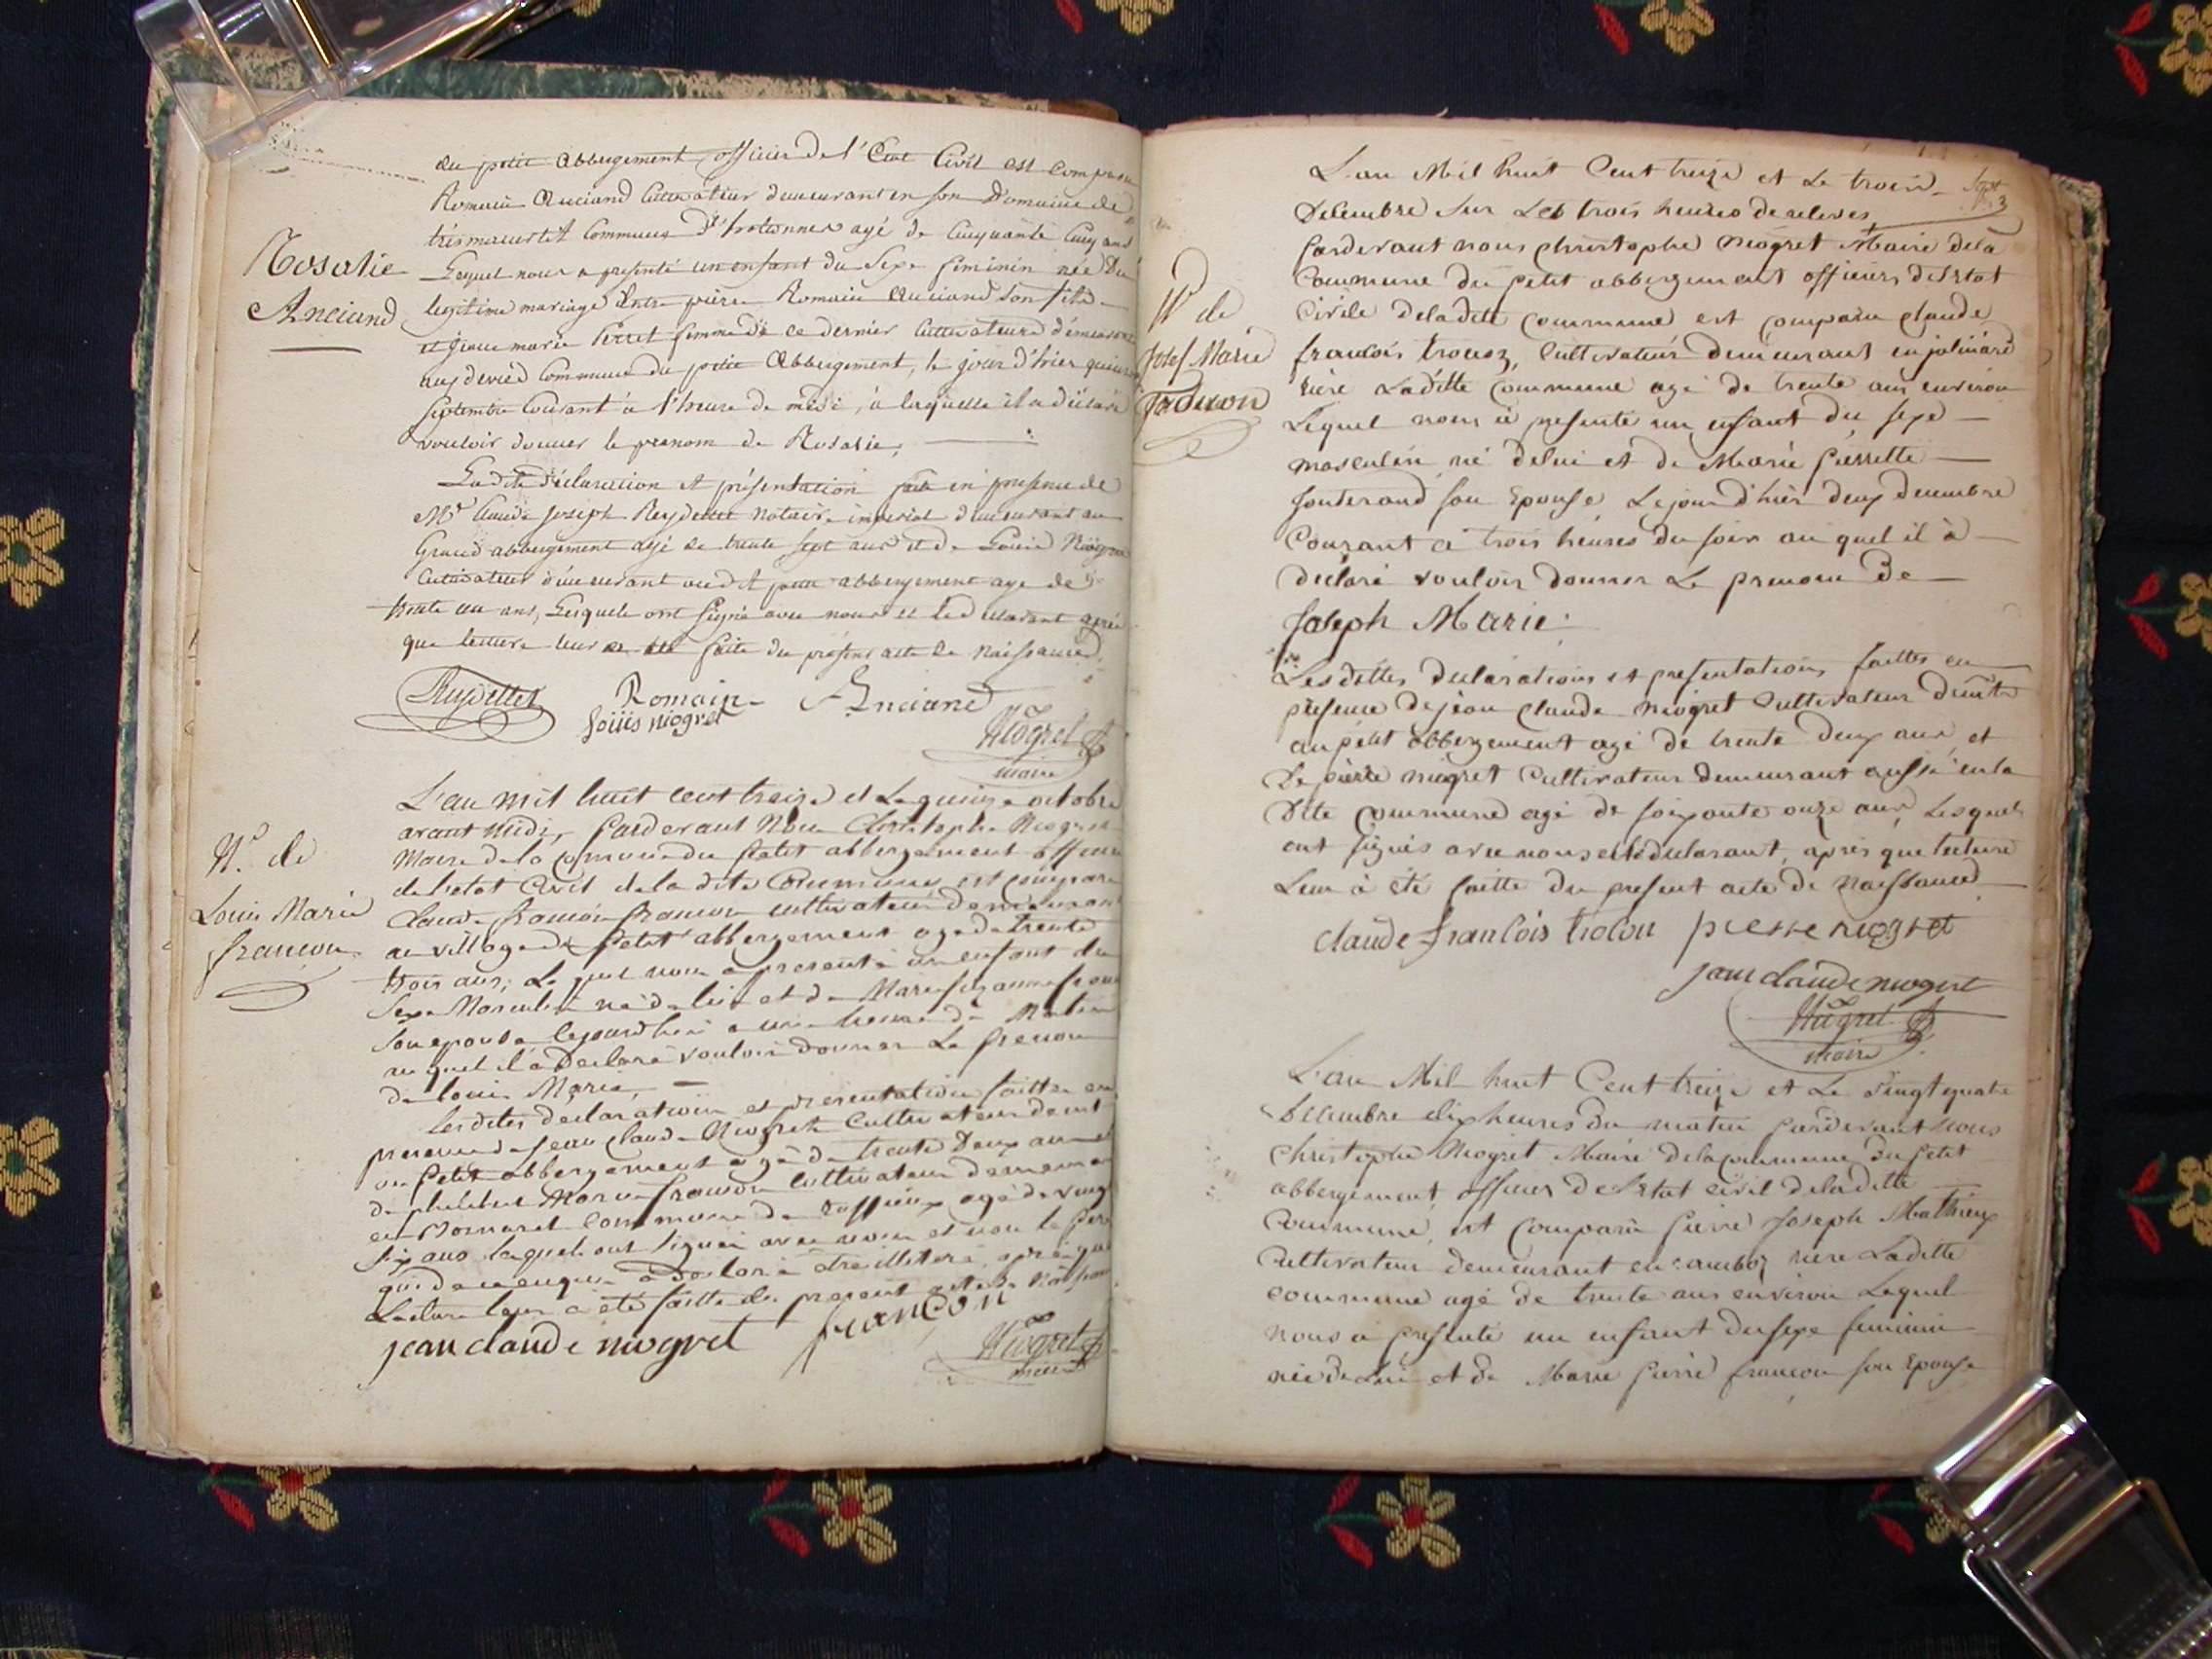 du petit abbergement, officier de l'Etat Civil est comparu
Romain Anciand Cultivateur demeurant en son Domaine de
commune d'hotonnes agé de Cinquante Cinq ans
Lequel nous a presenté un enfant du Sexe feminin née du
legitime mariage d'Entre pierre Romain Anciand son fils
et jeane marie Perret femme de ce dernier Cultivateurs demeurant
commune du petit Abbergement, le jour d'hier quinze
Septembre Courant à l'heure de midi, à laquelle il a déclaré
vouloir donner le prenom de Rosalie,
Rosalie
Anciand
Ladite déclaration et présentation faite en presence de
Mr Claude Joseph Reydellet notaire imperial demeurant au
Grand abbergement agé de trente sept ans et de Louis Niogret
Cultivateur demeurant audit petit abbergement age de
trente un ans, Lesquels ont signé avec nous et le declarant après
que lecture leur a été faite du présent acte de Naissance
Reydellet Romain Anciand
Loüis niogret
Niogret
maire
N.ce de
Louis Marie
francon
L'an mil huit cent treize et le quinze octobre
avant midi, Pardevant Nous Christophe Niogret
Maire de la Comune du Petit abbergement officier
de l'etat Civil de la dite Commune est comparu
Claude francois francon cultivateur demeurant
au village du Petit abbergement age de trente
trois ans, Le quel nous a presenté un enfant du
Sexe Masculin né de lui et de Marie suzanne
son epouse le jourd'hui a une heure du Matin
au quel il a Declaré vouloir donner Le Prenom
de louis Marie,
Lesdites declaration et presentation faittes en
presence de Jean Claude Niogret Cultivateur demt
au Petit abbergement agé de trente Deux ans et
de philibert Marie francon Cultivateur demeurant
en commune de Ruffieux agé de vingt
six ans lesquels ont signés avec nous et non le pere
qui de ce enquis a Declaré etre illiteré après que
Lecture leur a été faitte du present acte de Naissance
jean claude niogret francon
Niogret
maire
L'an Mil huit Cent treize et Le trois
Decembre Sur Les trois heures de relevés
Pardevant nous christophe Niogret Maire de la
Commune du Petit abbergement officier de l'etat
Civile de la dite Commune est comparu claude
francois Cultivateur demeurant en
riere Laditte Commune agé de trente ans environ
Lequel nous à presenté un enfant du sexe
masculin né de lui et de Marie Pierrette
son Epouse Le jour d'hier deux decembre
Courant à trois heures du soir au quel il à
declaré vouloir donner Le prenom De
Joseph Marie.
N.ce de
Josef Marie
Lesdittes declarations et presentations faittes en
presence de jean claude niogret Cultivateur demt
au petit abbergement agé de trente deux ans, et
De pierre niogret Cultivateur demeurant aussi en la
Dite Commune agé de soixante onze ans Lesquels
ont signés avec nous et le declarant, après que lecture
Leur à été faitte du present acte de Naissance
claude francois pierre niogret
jean claude niogret
Niogret
maire
L'an Mil huit Cent treize et Le Vingt quatre
Decembre dix heures du matin Pardevant Nous
Christophe Niogret Maire de la Commune du Petit
abbergement, officier de l'etat civil de laditte
Commune, est Comparu Pierre Joseph Mathieux
Cultivateur demeurant en riere Laditte
Commune agé de trente ans environ Lequel
nous a presenté un enfant du sexe feminin
née de Lui et de Marie Pierre francon son Epouse